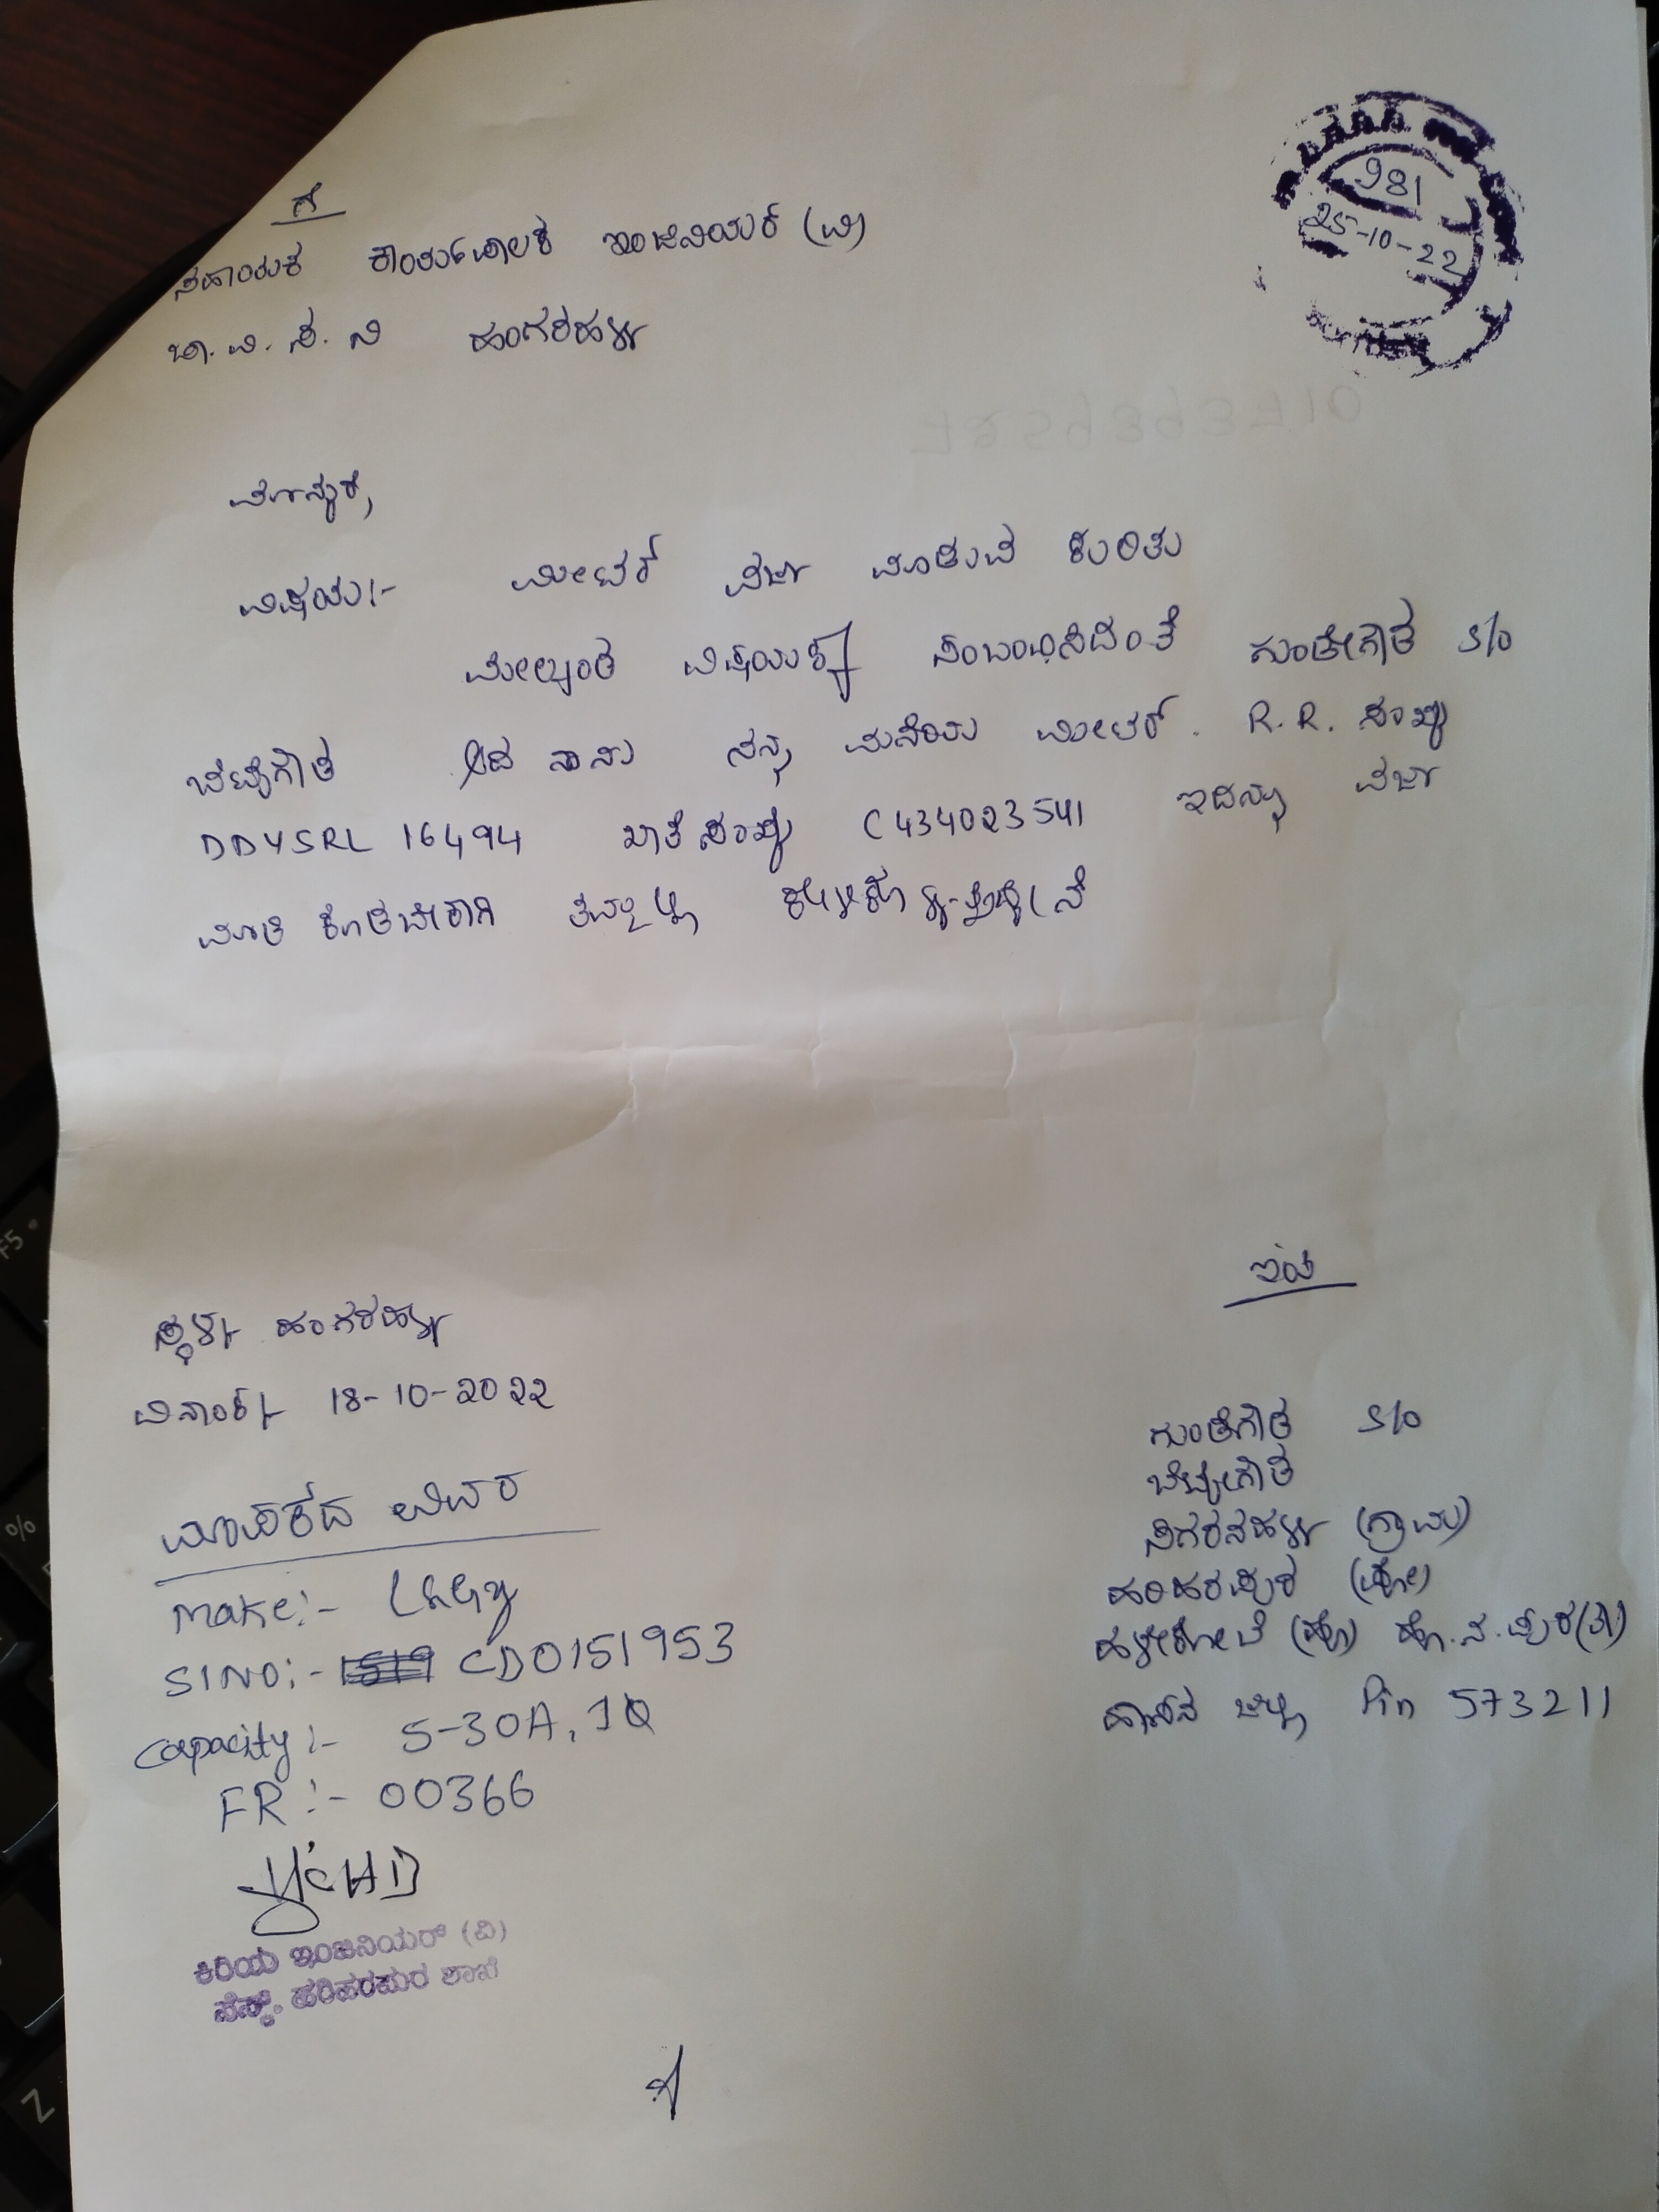 981
25-10-22
ಗೆ
ಸಹಾಯಕ ಕಾರ್ಯಪಾಲಕ ಇಂಜಿನಿಯರ್ (ವಿ)
ಚಾ.ವಿ.ಸ.ನಿ ಹಂಗರಹಳ್ಳಿ
ಮಾನ್ಯರೆ,
ವಿಷಯ:- ಮೀಟರ್ ವರ್ಜಾ ಮಾಡುವ ಕುರಿತು
ಮೇಲ್ಕಂಡ ವಿಷಯಕ್ಕೆ ಸಂಬಂಧಿಸಿದಂತೆ ಗುಂಡೇಗೌಡ S/o
ಬೆಟ್ಟೇಗೌಡ ಆದ ನಾನು ನನ್ನ ಮನೆಯ ಮೀಟರ್. R.R. ಸಂಖ್ಯೆ
DDYSRL 16494 ಖಾತೆ ಸಂಖ್ಯೆ (434023541 ಇದನ್ನು ವರ್ಜಾ
ಮಾಡಿ ಕೊಡಬೇಕಾಗಿ ತಮ್ಮಲ್ಲಿ
ಇಂತಿ
ಸ್ಥಳ:- ಹಂಗರಹಳ್ಳಿ
ದಿನಾಂಕ:- 18-10-2022
ಗುಂಡೇಗೌಡ S/o
ಬೆಟ್ಟೇಗೌಡ
ನಿಗರನಹಳ್ಳಿ (ಗ್ರಾಮ)
ಹರಿಹರಪುರ (ಪೋ)
ಹಳೇಕೋಟೆ (ಹೋ) ಹೊ.ನ.ಪುರ(ತಾ)
ಹಾಸನ ಜಿಲ್ಲೆ Pin 573211
ಮಾಪಕದ ವಿವರ
Make:-
SI NO:- CD0151953
Capacity:- 5-30A,
FR:- 00366
ಕಿರಿಯ ಇಂಜಿನಿಯರ್ (ವಿ)
ಸೆಸ್ಕ್. ಹರಿಹರಪುರ ಶಾಖೆ